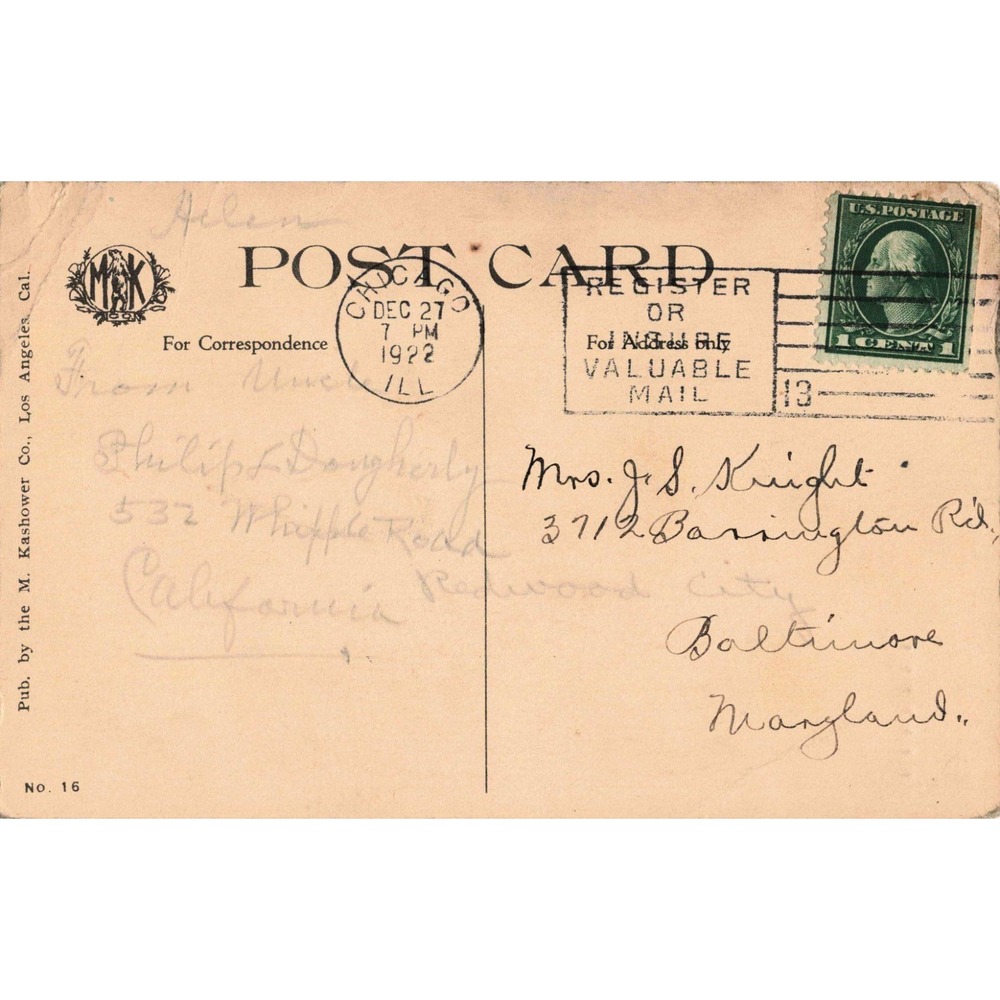 Helen
POST CARD
MK
For Correspondence
CHICAGO
DEC 27
7 PM
1922
ILL
REGISTER
OR
INSURE
VALUABLE
MAIL
13
For Address only
U.S. POSTAGE
1 CENT 1
From Uncle
Philip L Dougherty
532 Whipple Road
Redwood City
California
Mrs. J. S. Knight
3712 Barrington Rd.,
Baltimore
Maryland.
Pub. by the M. Kashower Co., Los Angeles, Cal.
No. 16